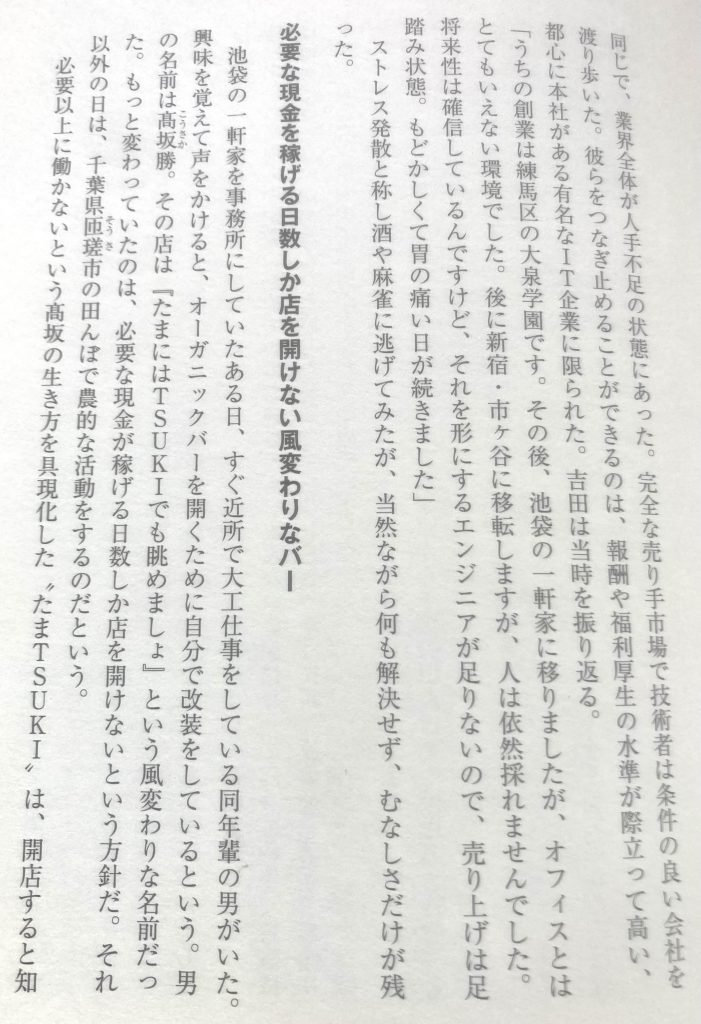 同じで、業界全体が人手不足の状態にあった。完全な売り手市場で技術者は条件の良い会社を
渡り歩いた。彼らをつなぎ止めることができるのは、報酬や福利厚生の水準が際立って高い、
都心に本社がある有名なIT企業に限られた。吉田は当時を振り返る。
「うちの創業は練馬区の大泉学園です。その後、池袋の一軒家に移りましたが、オフィスとは
とてもいえない環境でした。後に新宿・市ヶ谷に移転しますが、人は依然採れませんでした。
将来性は確信しているんですけど、それを形にするエンジニアが足りないので、売り上げは足
踏み状態。もどかしくて胃の痛い日が続きました」
ストレス発散と称し酒や麻雀に逃げてみたが、当然ながら何も解決せず、むなしさだけが残
った。
必要な現金を稼げる日数しか店を開けない風変わりなバー
池袋の一軒家を事務所にしていたある日、すぐ近所で大工仕事をしている同年輩の男がいた。
興味を覚えて声をかけると、オーガニックバーを開くために自分で改装をしているという。男
の名前は髙坂勝。その店は『たまにはTSUKIでも眺めましょ』という風変わりな名前だっ
こうさか
た。もっと変わっていたのは、必要な現金が稼げる日数しか店を開けないという方針だ。それ
以外の日は、千葉県匝瑳市の田んぼで農的な活動をするのだという。
そうさ
必要以上に働かないという髙坂の生き方を具現化した〝たまTSUKI〟は、開店すると知